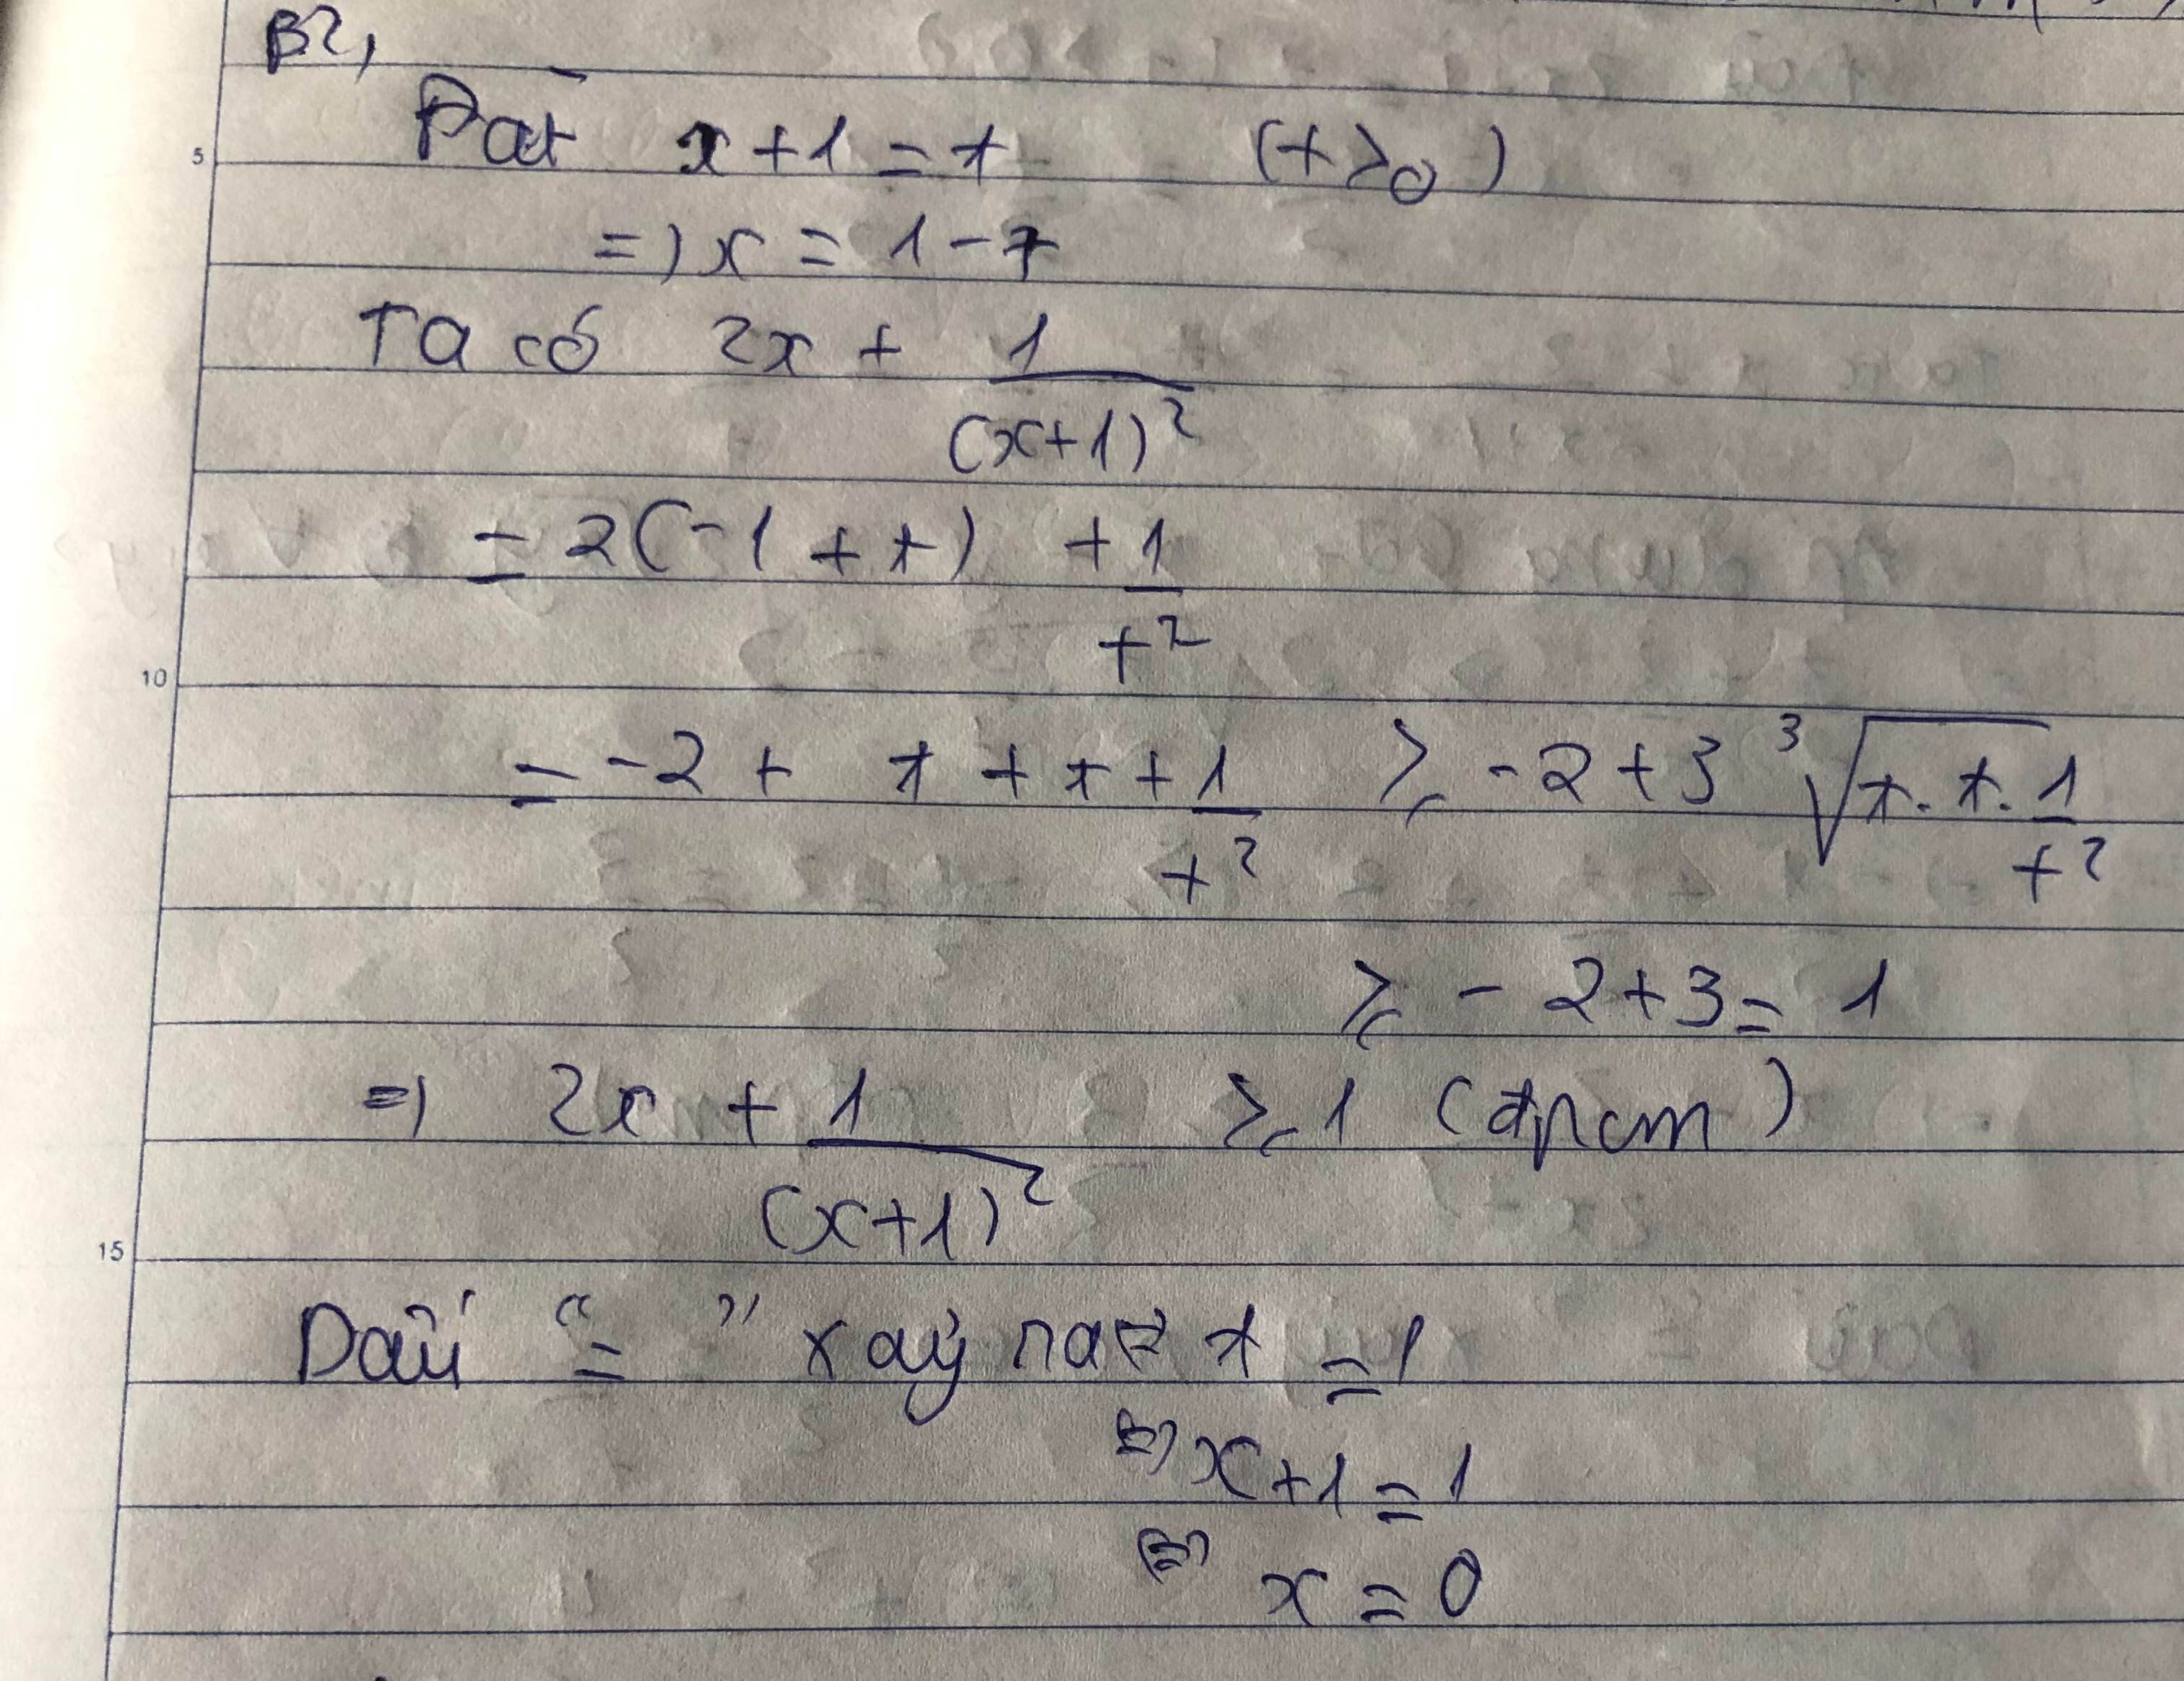 B2,
Đặt x+1=t (t>0)
=) x = 1-t
5
Ta có 2x + 1/(x+1)²
= 2(-1+t) + 1/t²
10
= -2 + t + t + 1/t² ≥ -2+3 ³√(t.t.1/t²)
≥ -2+3= 1
=) 2x + 1/(x+1)² ≥ 1 (đpcm)
15
Dấu "=" xảy ra (=) t = 1
(=) x+1=1
(=) x = 0